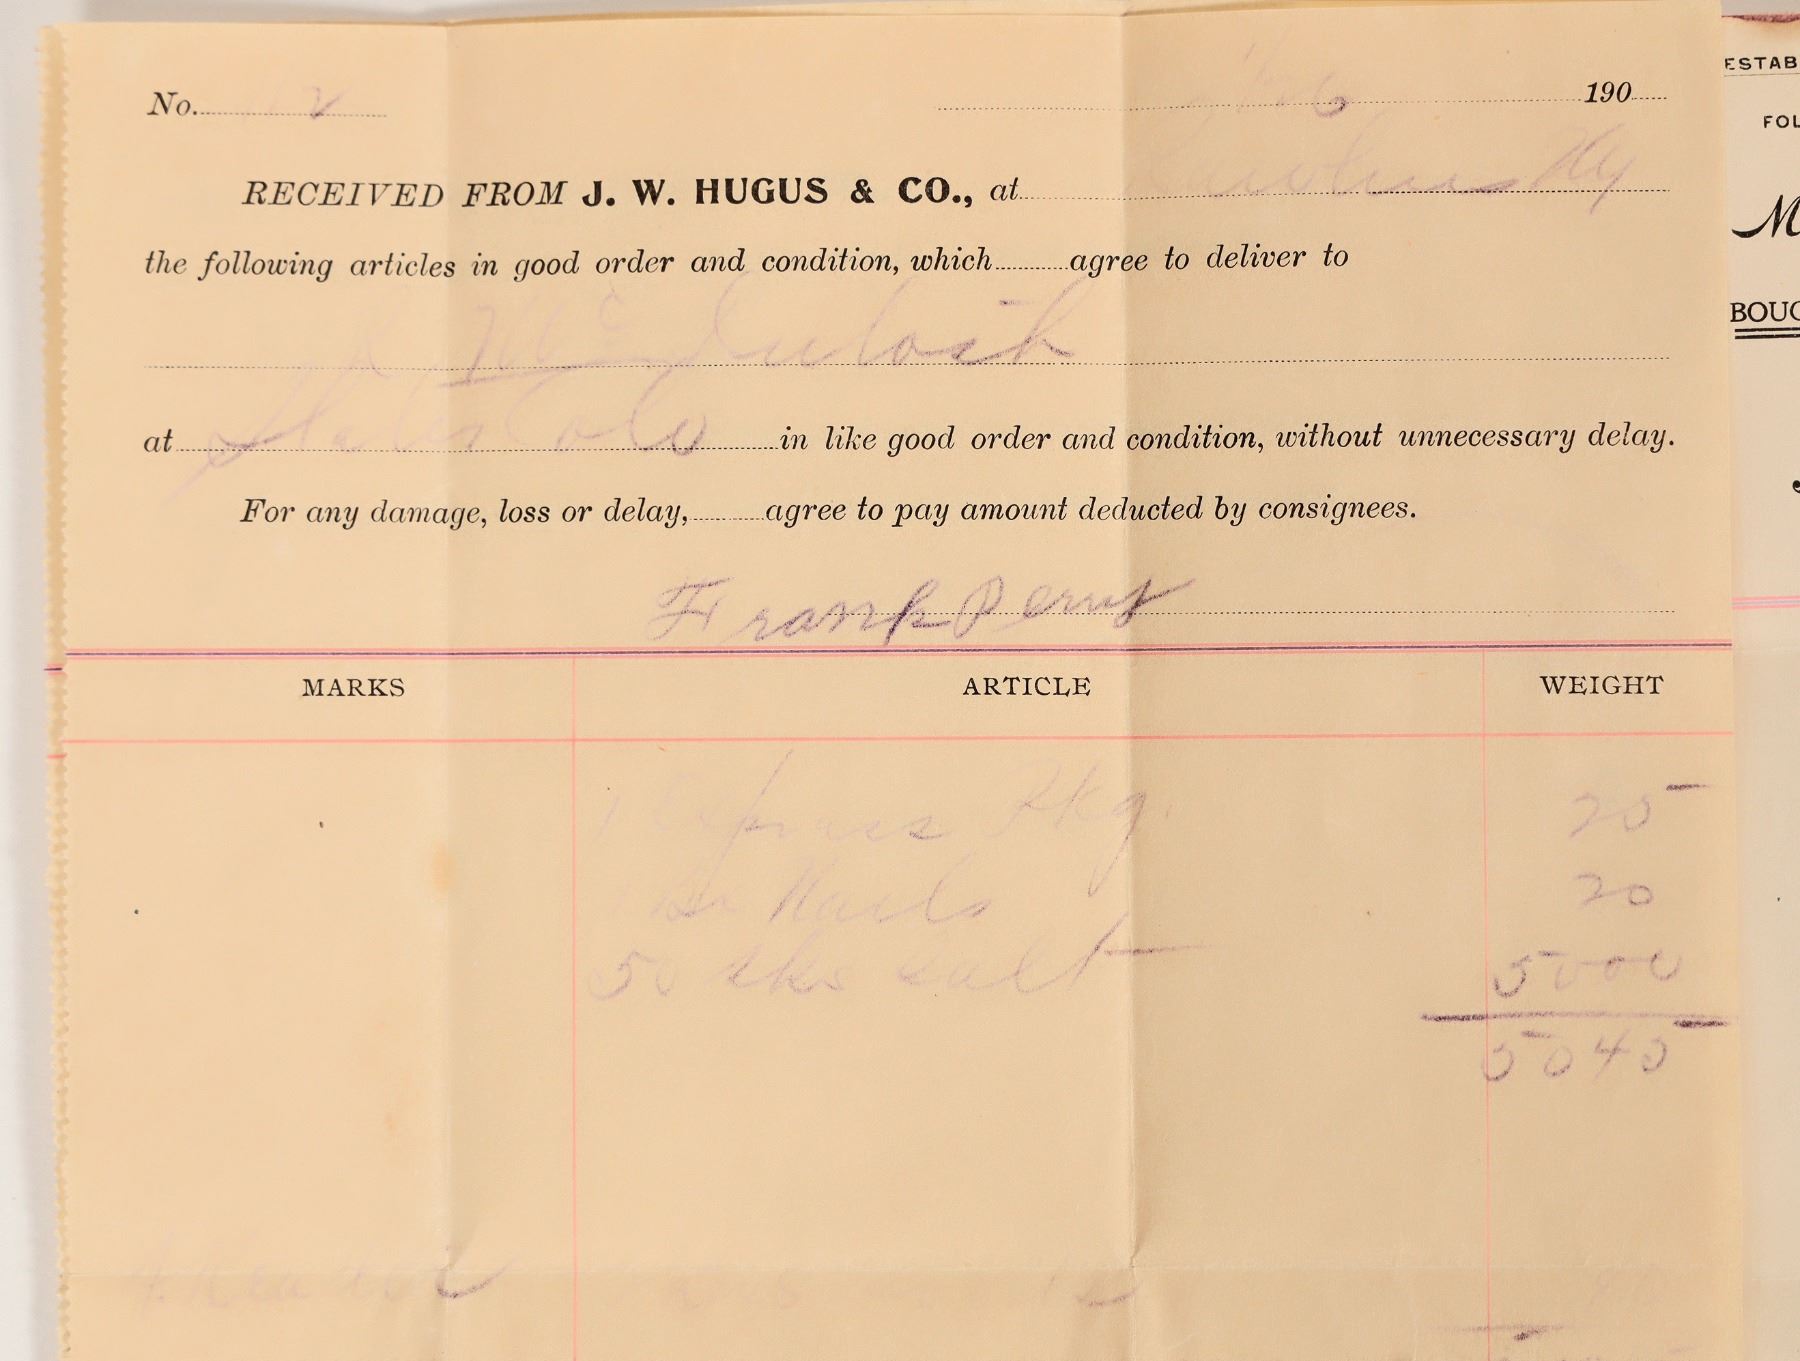 No. 12 190
RECEIVED FROM J. W. HUGUS & CO., at Rawlins Wy
the following articles in good order and condition, which agree to deliver to
Mc
at Slater Colo in like good order and condition, without unnecessary delay.
For any damage, loss or delay, agree to pay amount deducted by consignees.
Frank Perry
MARKS ARTICLE WEIGHT
1 Express Pkg. 25
Nails 20
50 sks salt 5000
5045
ESTAB
FOL
M
BOUG